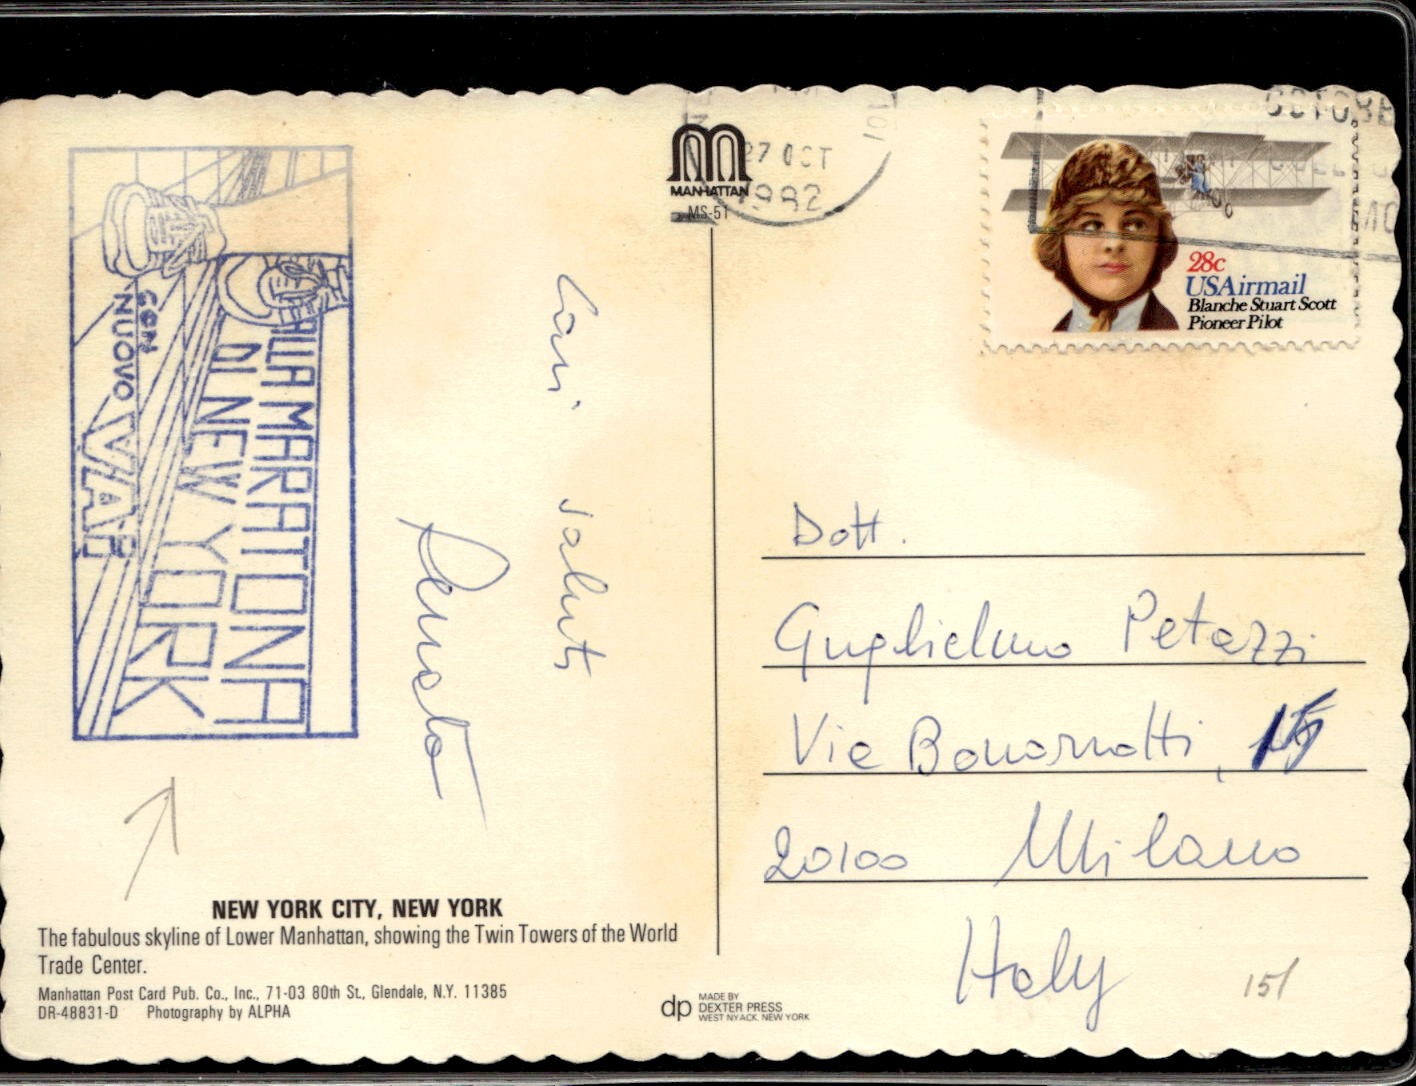 ALLA MARATONA
DI NEW YORK
CON
NUOVO VAP
Cari saluti
Renato
MANHATTAN
MS-51
27 OCT
1982
28c
USAirmail
Blanche Stuart Scott
Pioneer Pilot
Dott.
Guglielmo Petazzi
Via Bonarrotti, 15
20100 Milano
Italy
151
NEW YORK CITY, NEW YORK
The fabulous skyline of Lower Manhattan, showing the Twin Towers of the World
Trade Center.
Manhattan Post Card Pub. Co., Inc., 71-03 80th St., Glendale, N.Y. 11385
DR-48831-D Photography by ALPHA
dp
MADE BY
DEXTER PRESS
WEST NYACK, NEW YORK